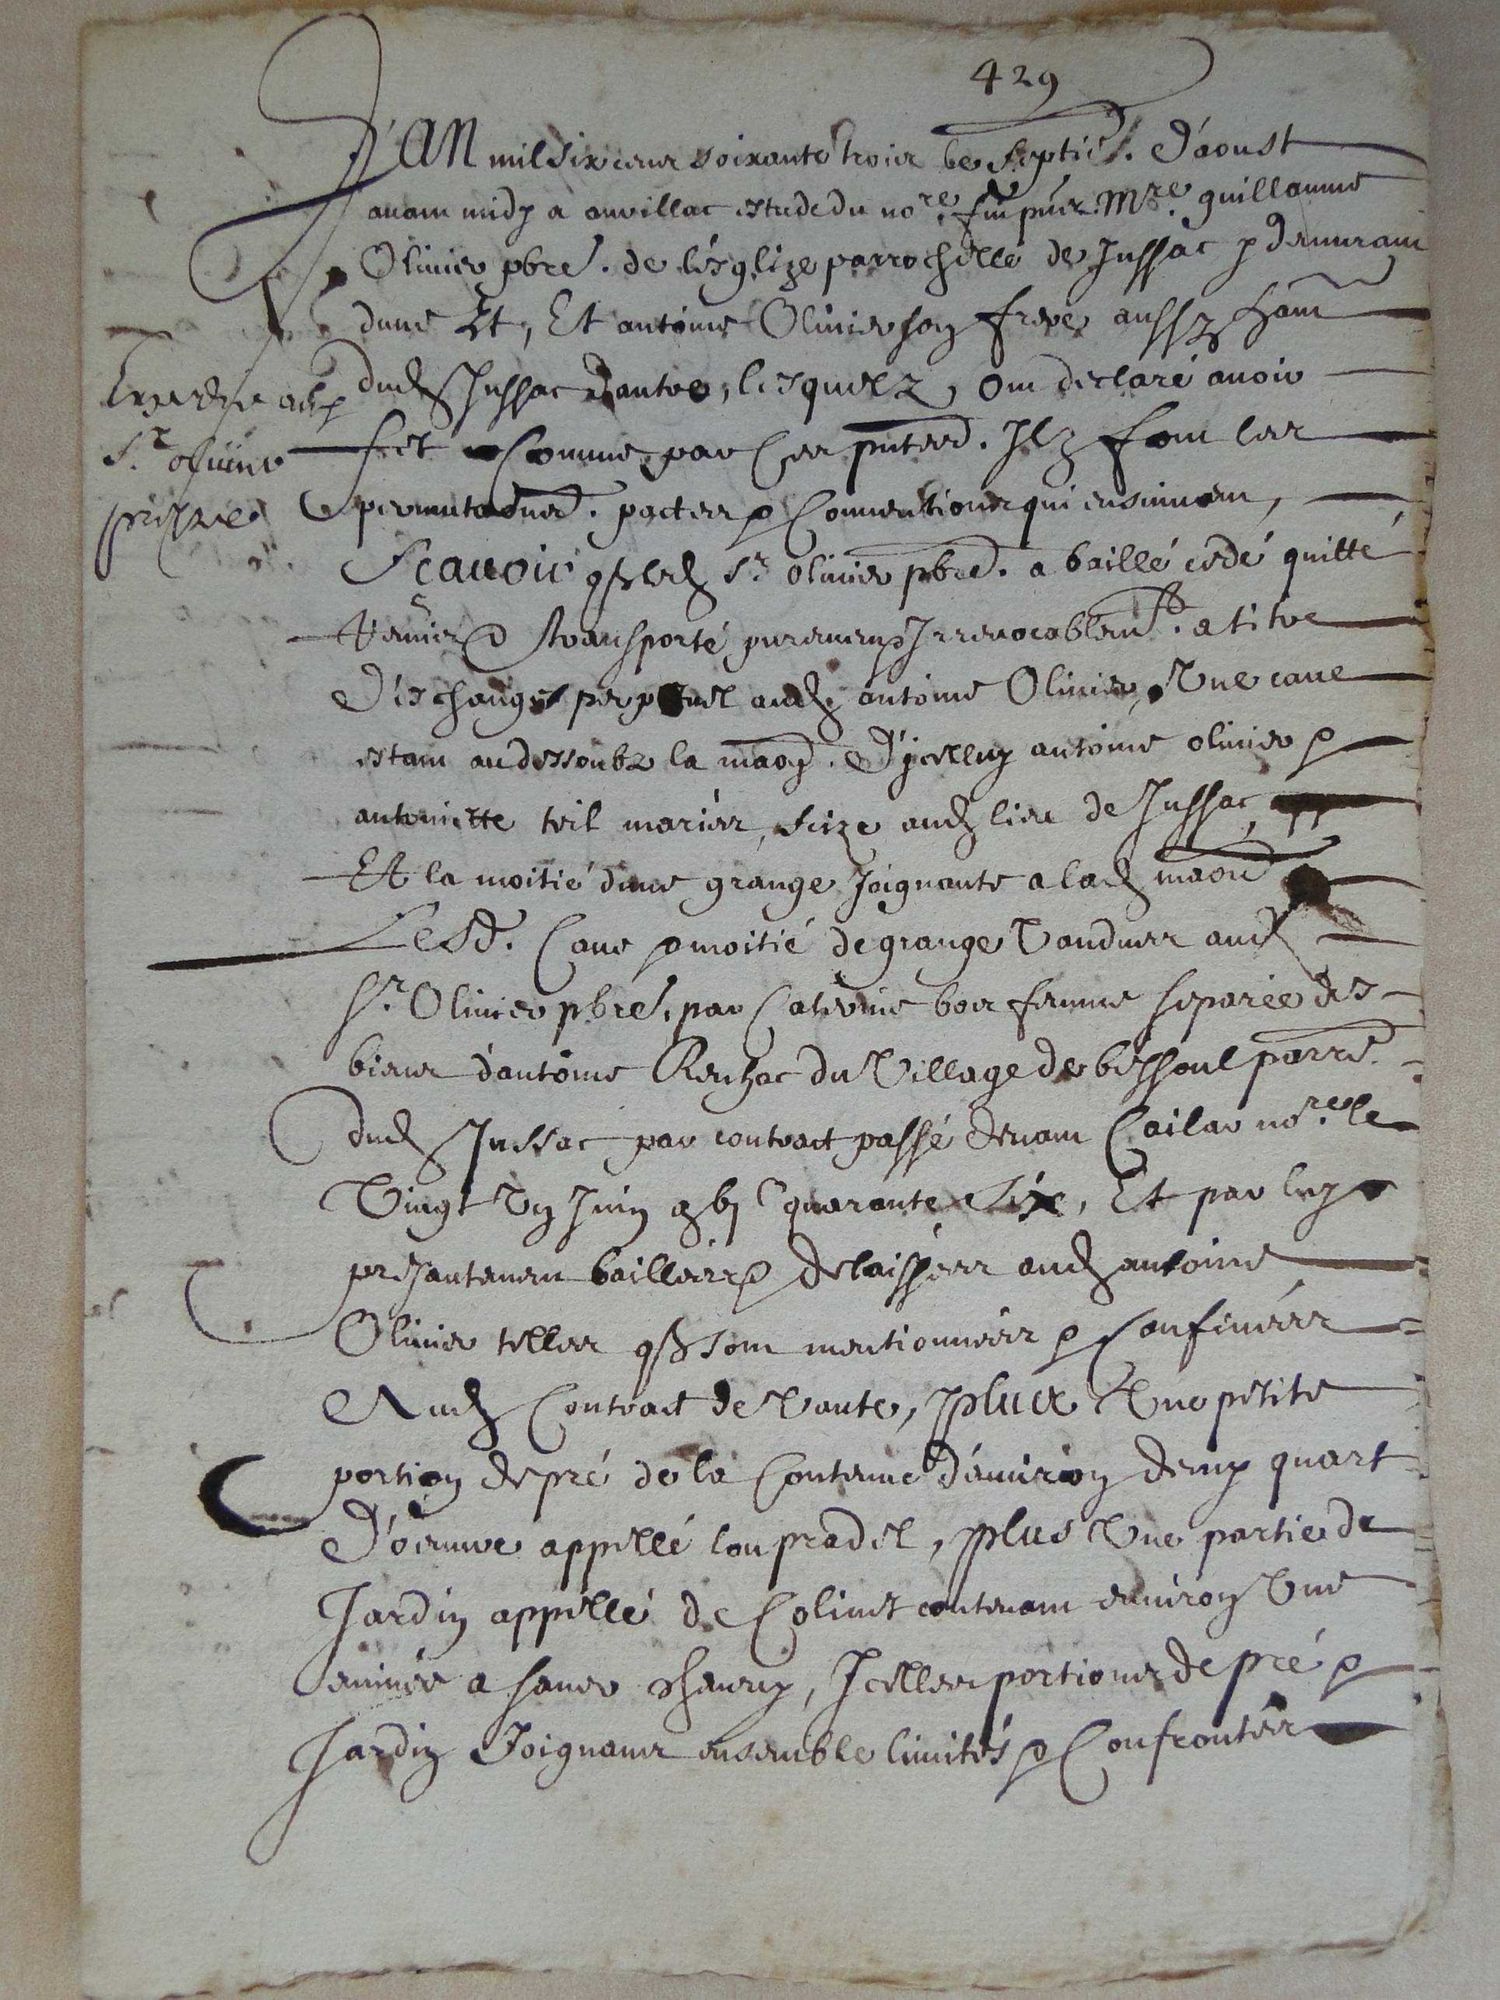 429
L'AN mil six cens soixante trois le septie. d'aoust
avant midy a aurillac estude du nore. fut pnt Mre. guillaume
Olivier pbre. de l'esglize parrochelle de Jussac y demurant
dune Et, Et antoine Olivier son frere aussy hant
dud Jussac dautre, lesquelz, ont declaré avoir
fet comme par ces pntes. Ilz font les
permutaons. pactes & conventions qui ensuivent,
Scavoir q led Sr. olivier pbre. a baillé cedé quitté
& transporté purement & Irrevocablemt. a titre
d'eschange perpetuel aud antoine Olivier, Une cave
estant au dessoubz la maon. d'ycelluy antoine olivier &
antoinette teil mariés, size aud lieu de Jussac,
Et la moitié dune grange Joignante a lad maon
Lesd. Cave & moitié de grange Vandues aud
Sr. Olivier pbre, par Caterine bois femme separée des
biens d'antoine Reilhac du Village de bessoul parre.
dud Jussac par contract passé devant Cailar nore. le
Vingt Un Juin gbj c quarante six, Et par luy
presantement baillées & delaissées aud antoine
Olivier telles q sont mentionnées & confinées
Aud Contract de Vante, plus Une petite
portion de pré de la Contenue d'environ demy quart
D'oeuvre appellé lou pradel, plus Une partie de
Jardin appellé de Colinet contenant environ Une
a semer chenevy, Icelles portions de pré &
Jardin Joignans ensemble limités & Confrontés
Sr. olivier